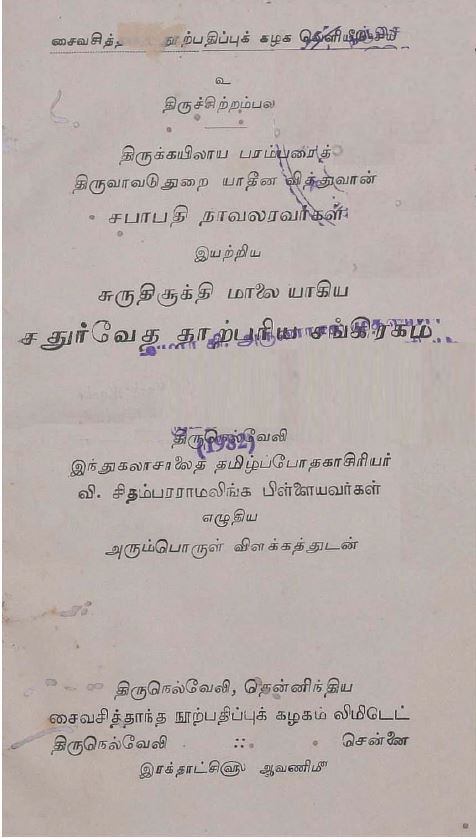 சைவசித்தாந்த நூற்பதிப்புக் கழக வெளியீடு
உ
திருச்சிற்றம்பல
திருக்கயிலாய பரம்பரைத்
திருவாவடுதுறை யாதீன வித்துவான்
சபாபதி நாவலரவர்கள்
இயற்றிய
சுருதிசூக்தி மாலை யாகிய
சதுர்வேத தாற்பரிய சங்கிரகம்
திருநெல்வேலி
(1982)
இந்துகலாசாலைத் தமிழ்ப்போதகாசிரியர்
வி. சிதம்பரராமலிங்க பிள்ளையவர்கள்
எழுதிய
அரும்பொருள் விளக்கத்துடன்
திருநெல்வேலி, தென்னிந்திய
சைவசித்தாந்த நூற்பதிப்புக் கழகம் லிமிடெட்
திருநெல்வேலி ஃ சென்னை
இரக்தாட்சி௵ ஆவணி௴